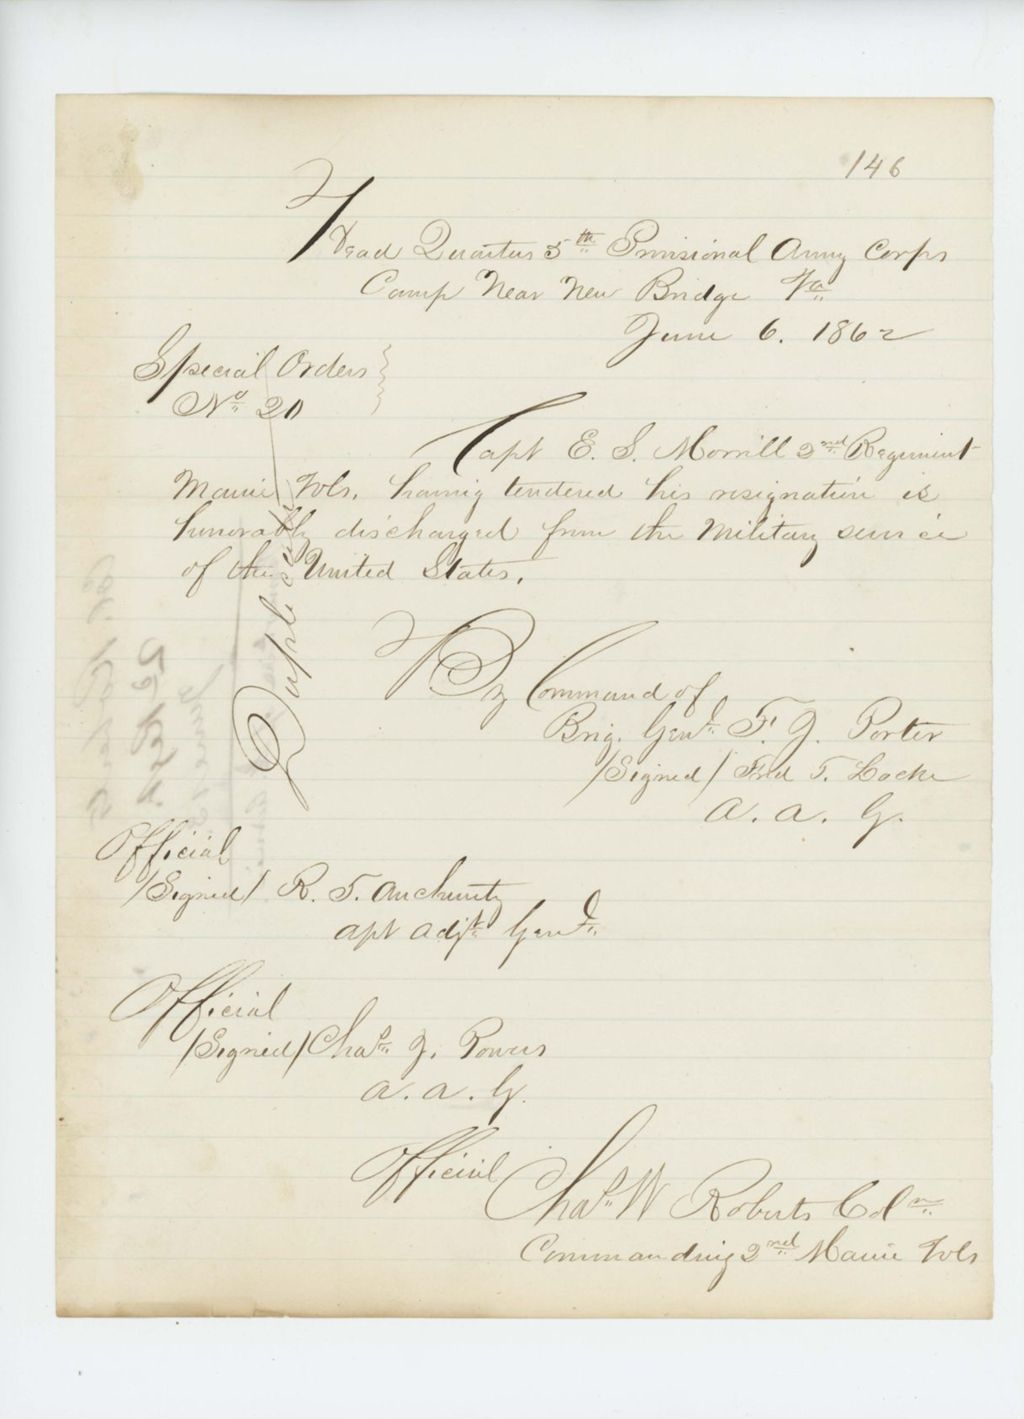 146
Head Quarters 5th Provisional Army Corps
Camp Near New Bridge Va
June 6. 1862
Special Orders
No 20
Capt E. S. Morrill 2nd Regiment
Maine Vols. having tendered his resignation is
honorably discharged from the Military service
of the United States.
Duplicate
By Command of
Brig. Genl. F. J. Porter
/Signed/ Fred T. Locke
A. A. G.
Official
/Signed/ R. T. Auchmuty
apt adjt Genl.
Official
/Signed/ Chas. J. Powers
A. A. G.
Official Chas. W Roberts Col
Commanding 2nd Maine Vols